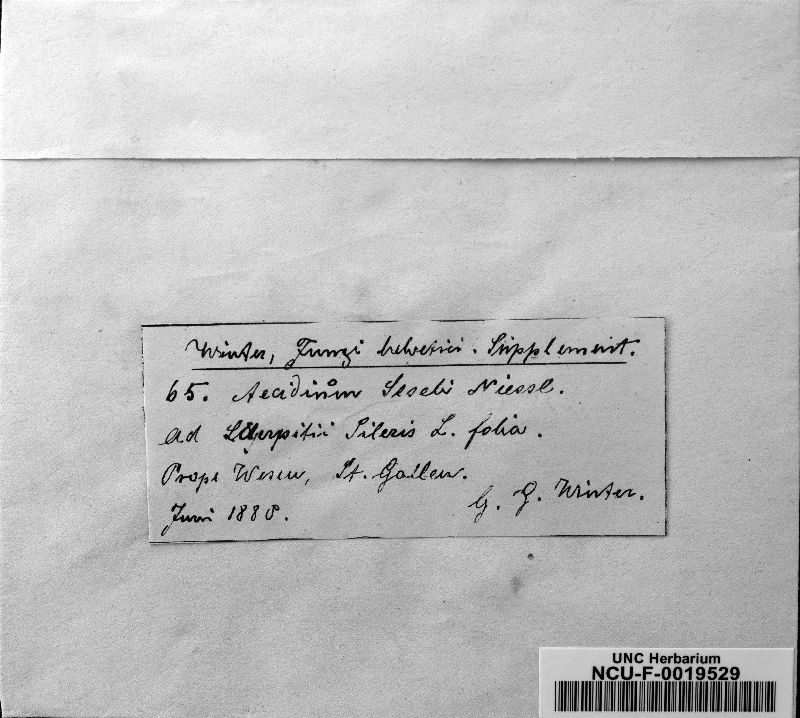 Winter, Fungi helvetici. Supplement.
65. Aecidium Seseli Niessl.
ad Laserpitii Sileris L. folia.
Prope Wesen, St. Gallen.
Juni 1880. G. G. Winter.
UNC Herbarium
NCU-F-0019529